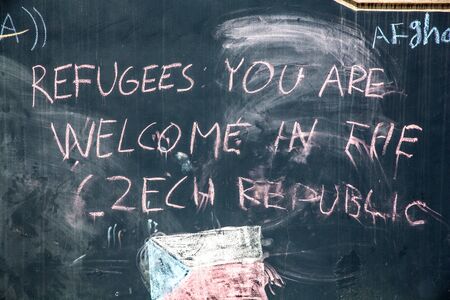 A))
AFgha
REFUGEES: YOU ARE
WELCOME IN THE
CZECH REPUBLIC